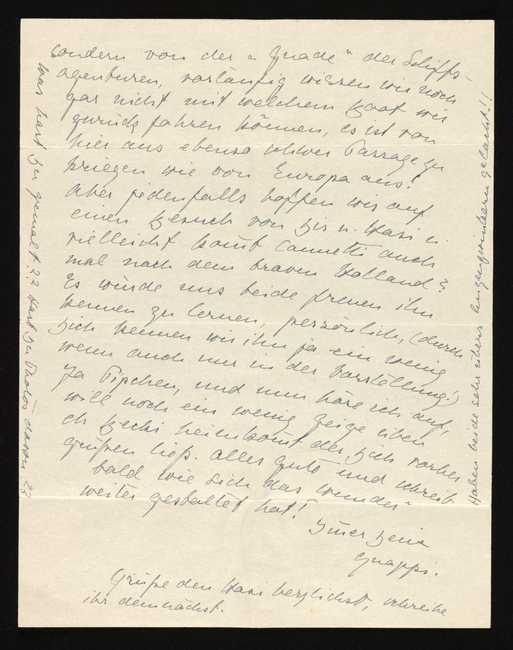 sondern von der „Gnade“ der Schiffs-
agenturen, vorläufig wissen wir noch
gar nicht mit welchem Boot wir
zurück fahren können, es ist von
hier aus ebenso schwer Passage zu
kriegen wie von Europa aus!
Aber jedenfalls hoffen wir auf
einen Besuch von Dir u. u.
vielleicht komt Cannetti auch
mal nach dem braven Holland?
Es würde uns beide freuen ihn
kennen zu lernen, persönlich, (durch
Dich kennen wir ihn ja ein wenig
wenn auch nur in der Vorstellung!)
Ja Pipchen, und nun höre ich auf,
will noch ein wenig Geige üben
eh Becki heimkomt der Dich vorher
grüßen ließ. Alles gute und schreib
bald wie sich das wunder-
weiter gestaltet hat!
Immer Deine
Quappi.
Grüße den herzlichst, schreibe
ihr demnächst.
Was hast Du gemalt?? Hast Du Photos davon??
Haben beide sehr übers Augenzwinkern gelacht!!